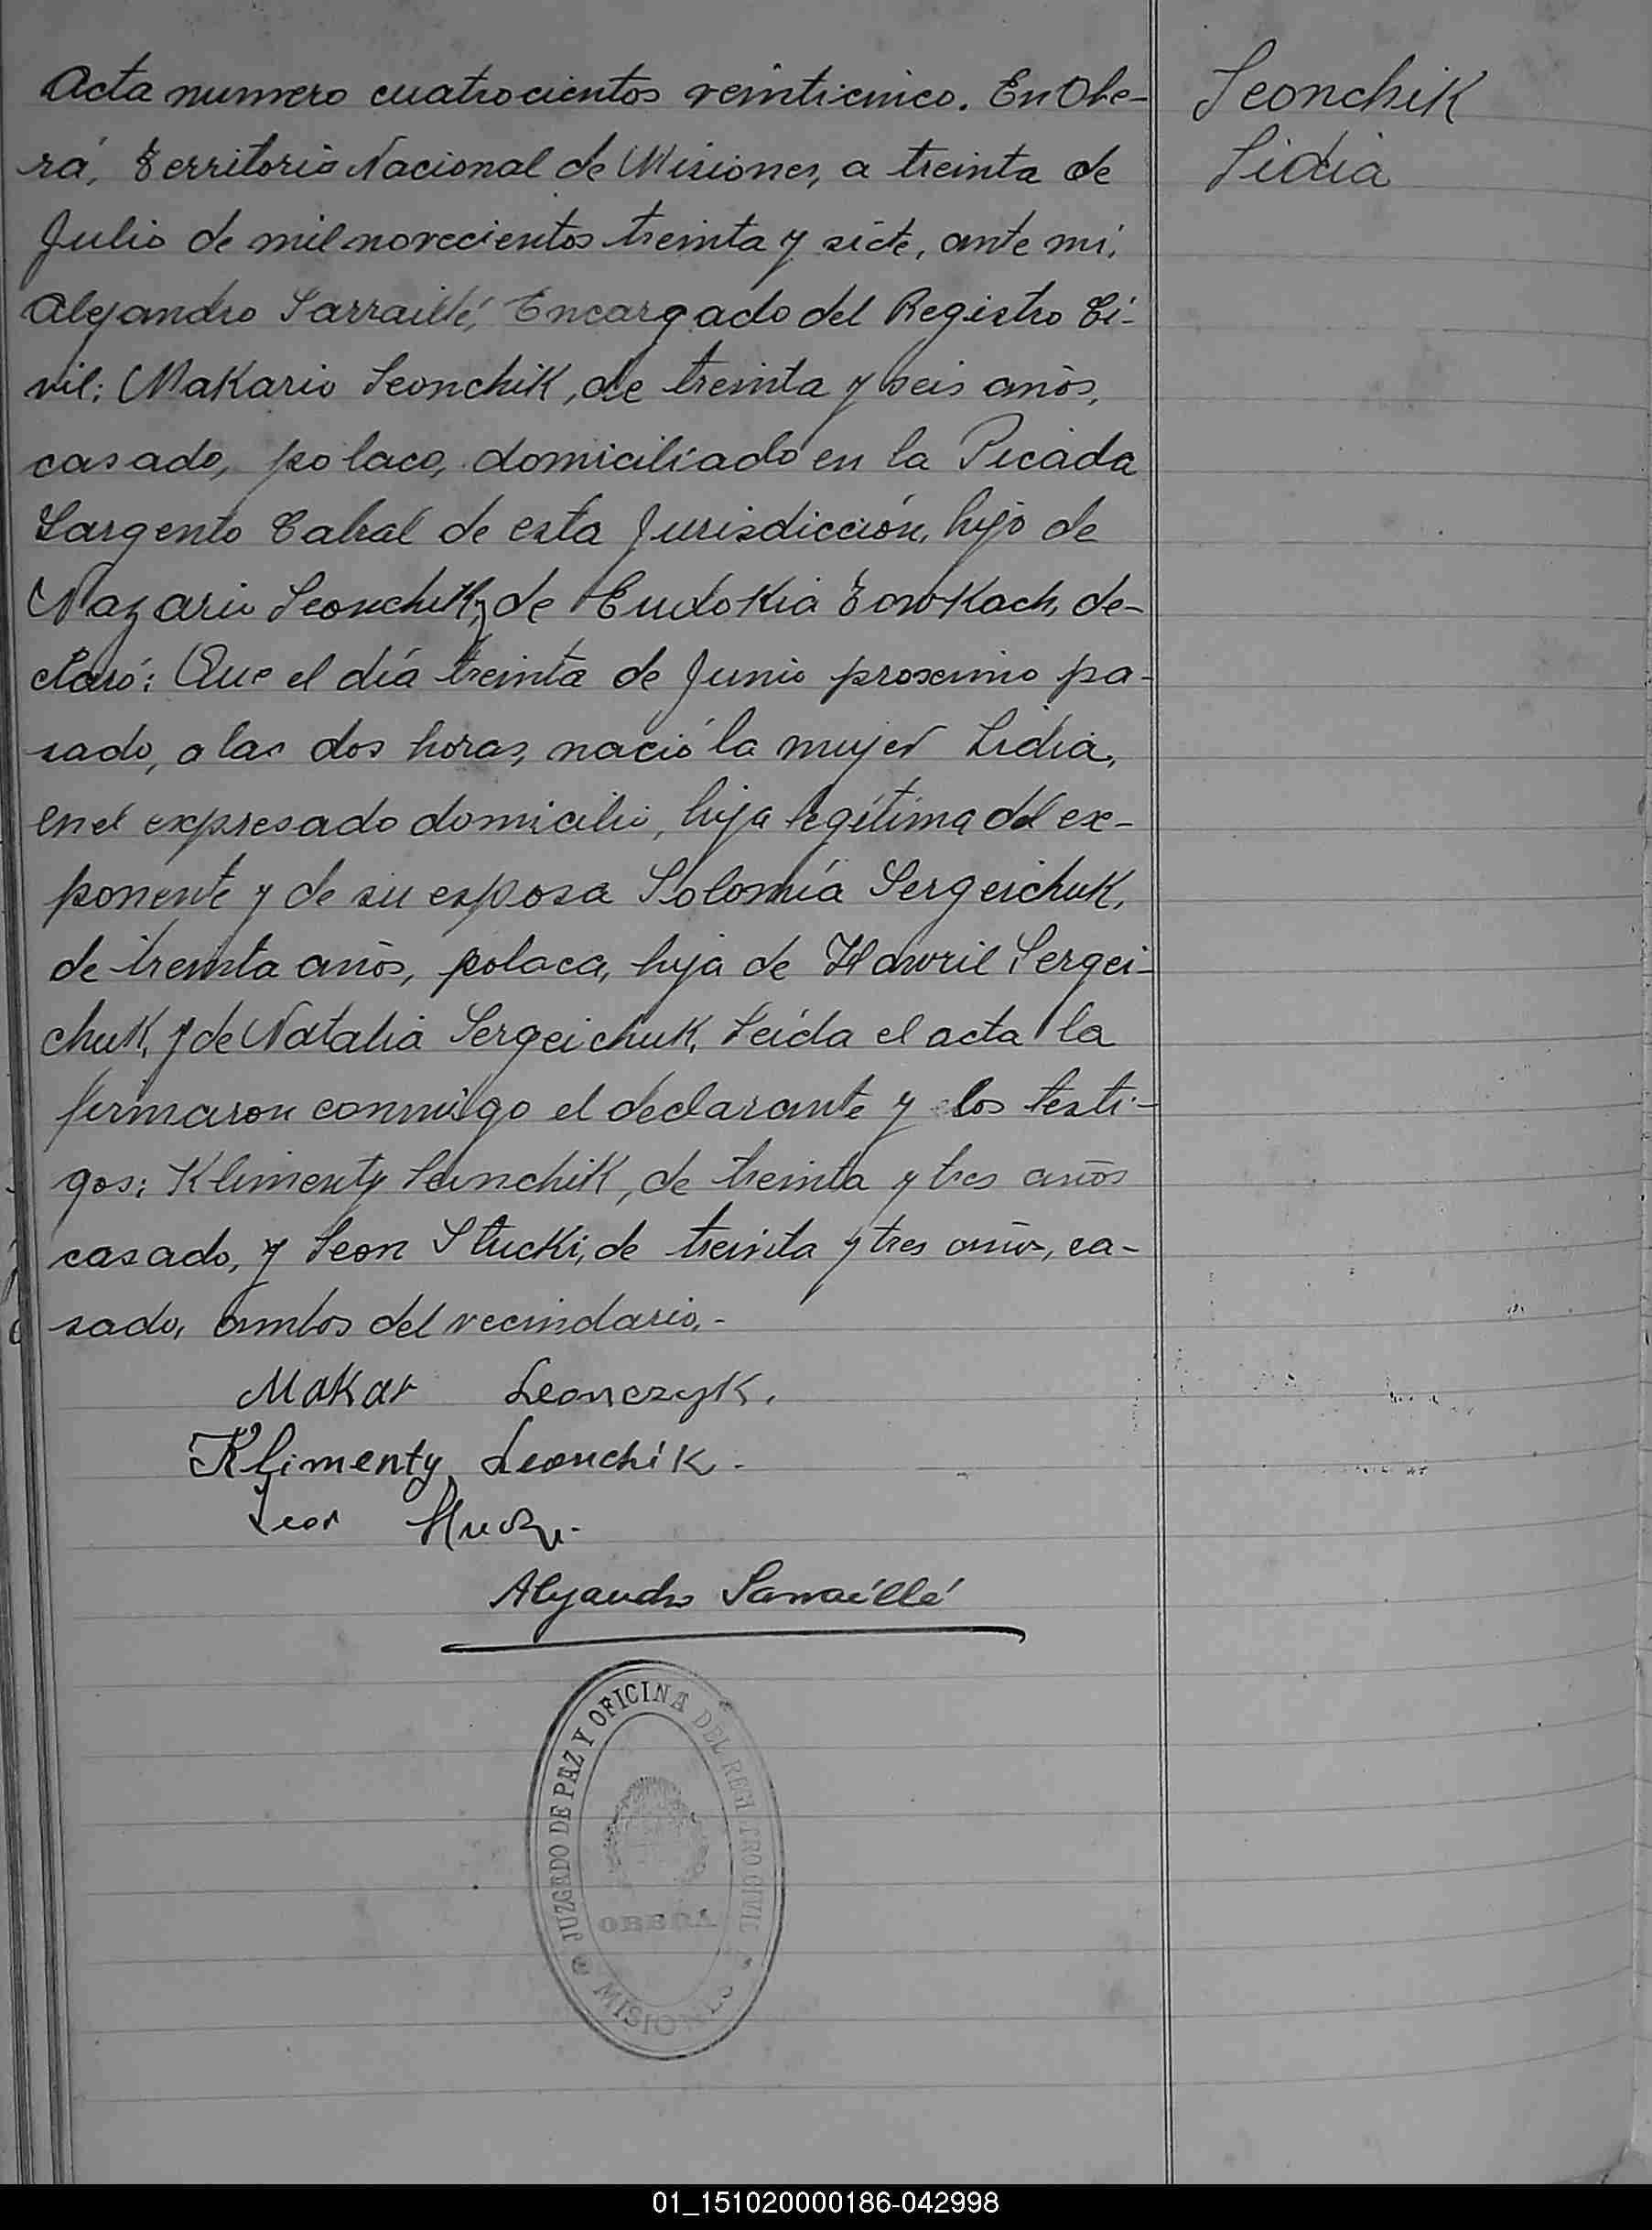 Acta numero cuatrocientos veinticinco. En Obe-
rá, Territorio Nacional de Misiones, a treinta de
Julio de mil novecientos treinta y siete, ante mi,
Alejandro Sarraillé, Encargado del Registro Ci-
vil: Makario Leonchik, de treinta y seis años,
casado, polaco, domiciliado en la Picada
Sargento Cabral de esta Jurisdicción, hijo de
Nazario Leonchik, y de Eudokia Towkach, de-
claró: Que el día treinta de Junio proximo pa-
sado, a las dos horas, nació la mujer Lidia,
en el expresado domicilio, hija legítima del ex-
ponente y de su esposa Solomía Sergeichuk,
de treinta años, polaca, hija de Hawril Sergei-
chuk, y de Natalia Sergeichuk, Leída el acta la
firmaron conmigo el declarante y los testi-
gos: Klimenty Leonchik, de treinta y tres años
casado, y Leon Stucki, de treinta y tres años, ca-
sado, ambos del vecindario.-
Leonchik
Lidia
Makar Leonczyk.
Klimenty Leonchik.
Leon
Alejandro Sarraillé
JUZGADO DE PAZ Y OFICINA DEL REGISTRO CIVIL
OBERA
MISIONES
01_151020000186-042998